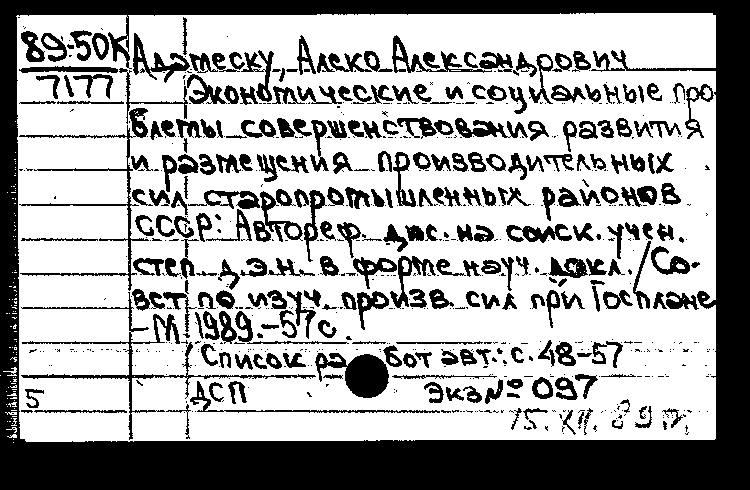 89-50К Адамеску, Алеко Александрович
7177 Экономические и социальные про-
блемы совершенствования развития
и размещения производительных
сил старопромышленных районов
СССР: Автореф. дис. на соиск. учен.
степ. д.э.н. в форме науч. докл./Со-
вет по изуч. произв. сил при Госплане
-М 1989.-57с.
Список работ авт.: с. 48-57
5 ДСП Экз № 097
15.XII.89 г.